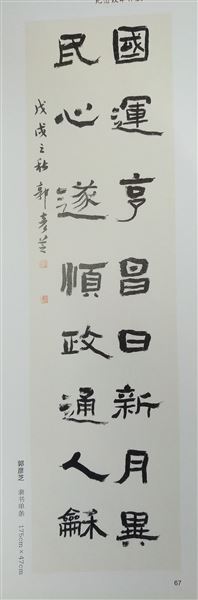 國運亨昌日新月異
民心遂順政通人龢
戊戌之秋郭彦芝
郭彦芝 隶书单条 175cm×47cm
67